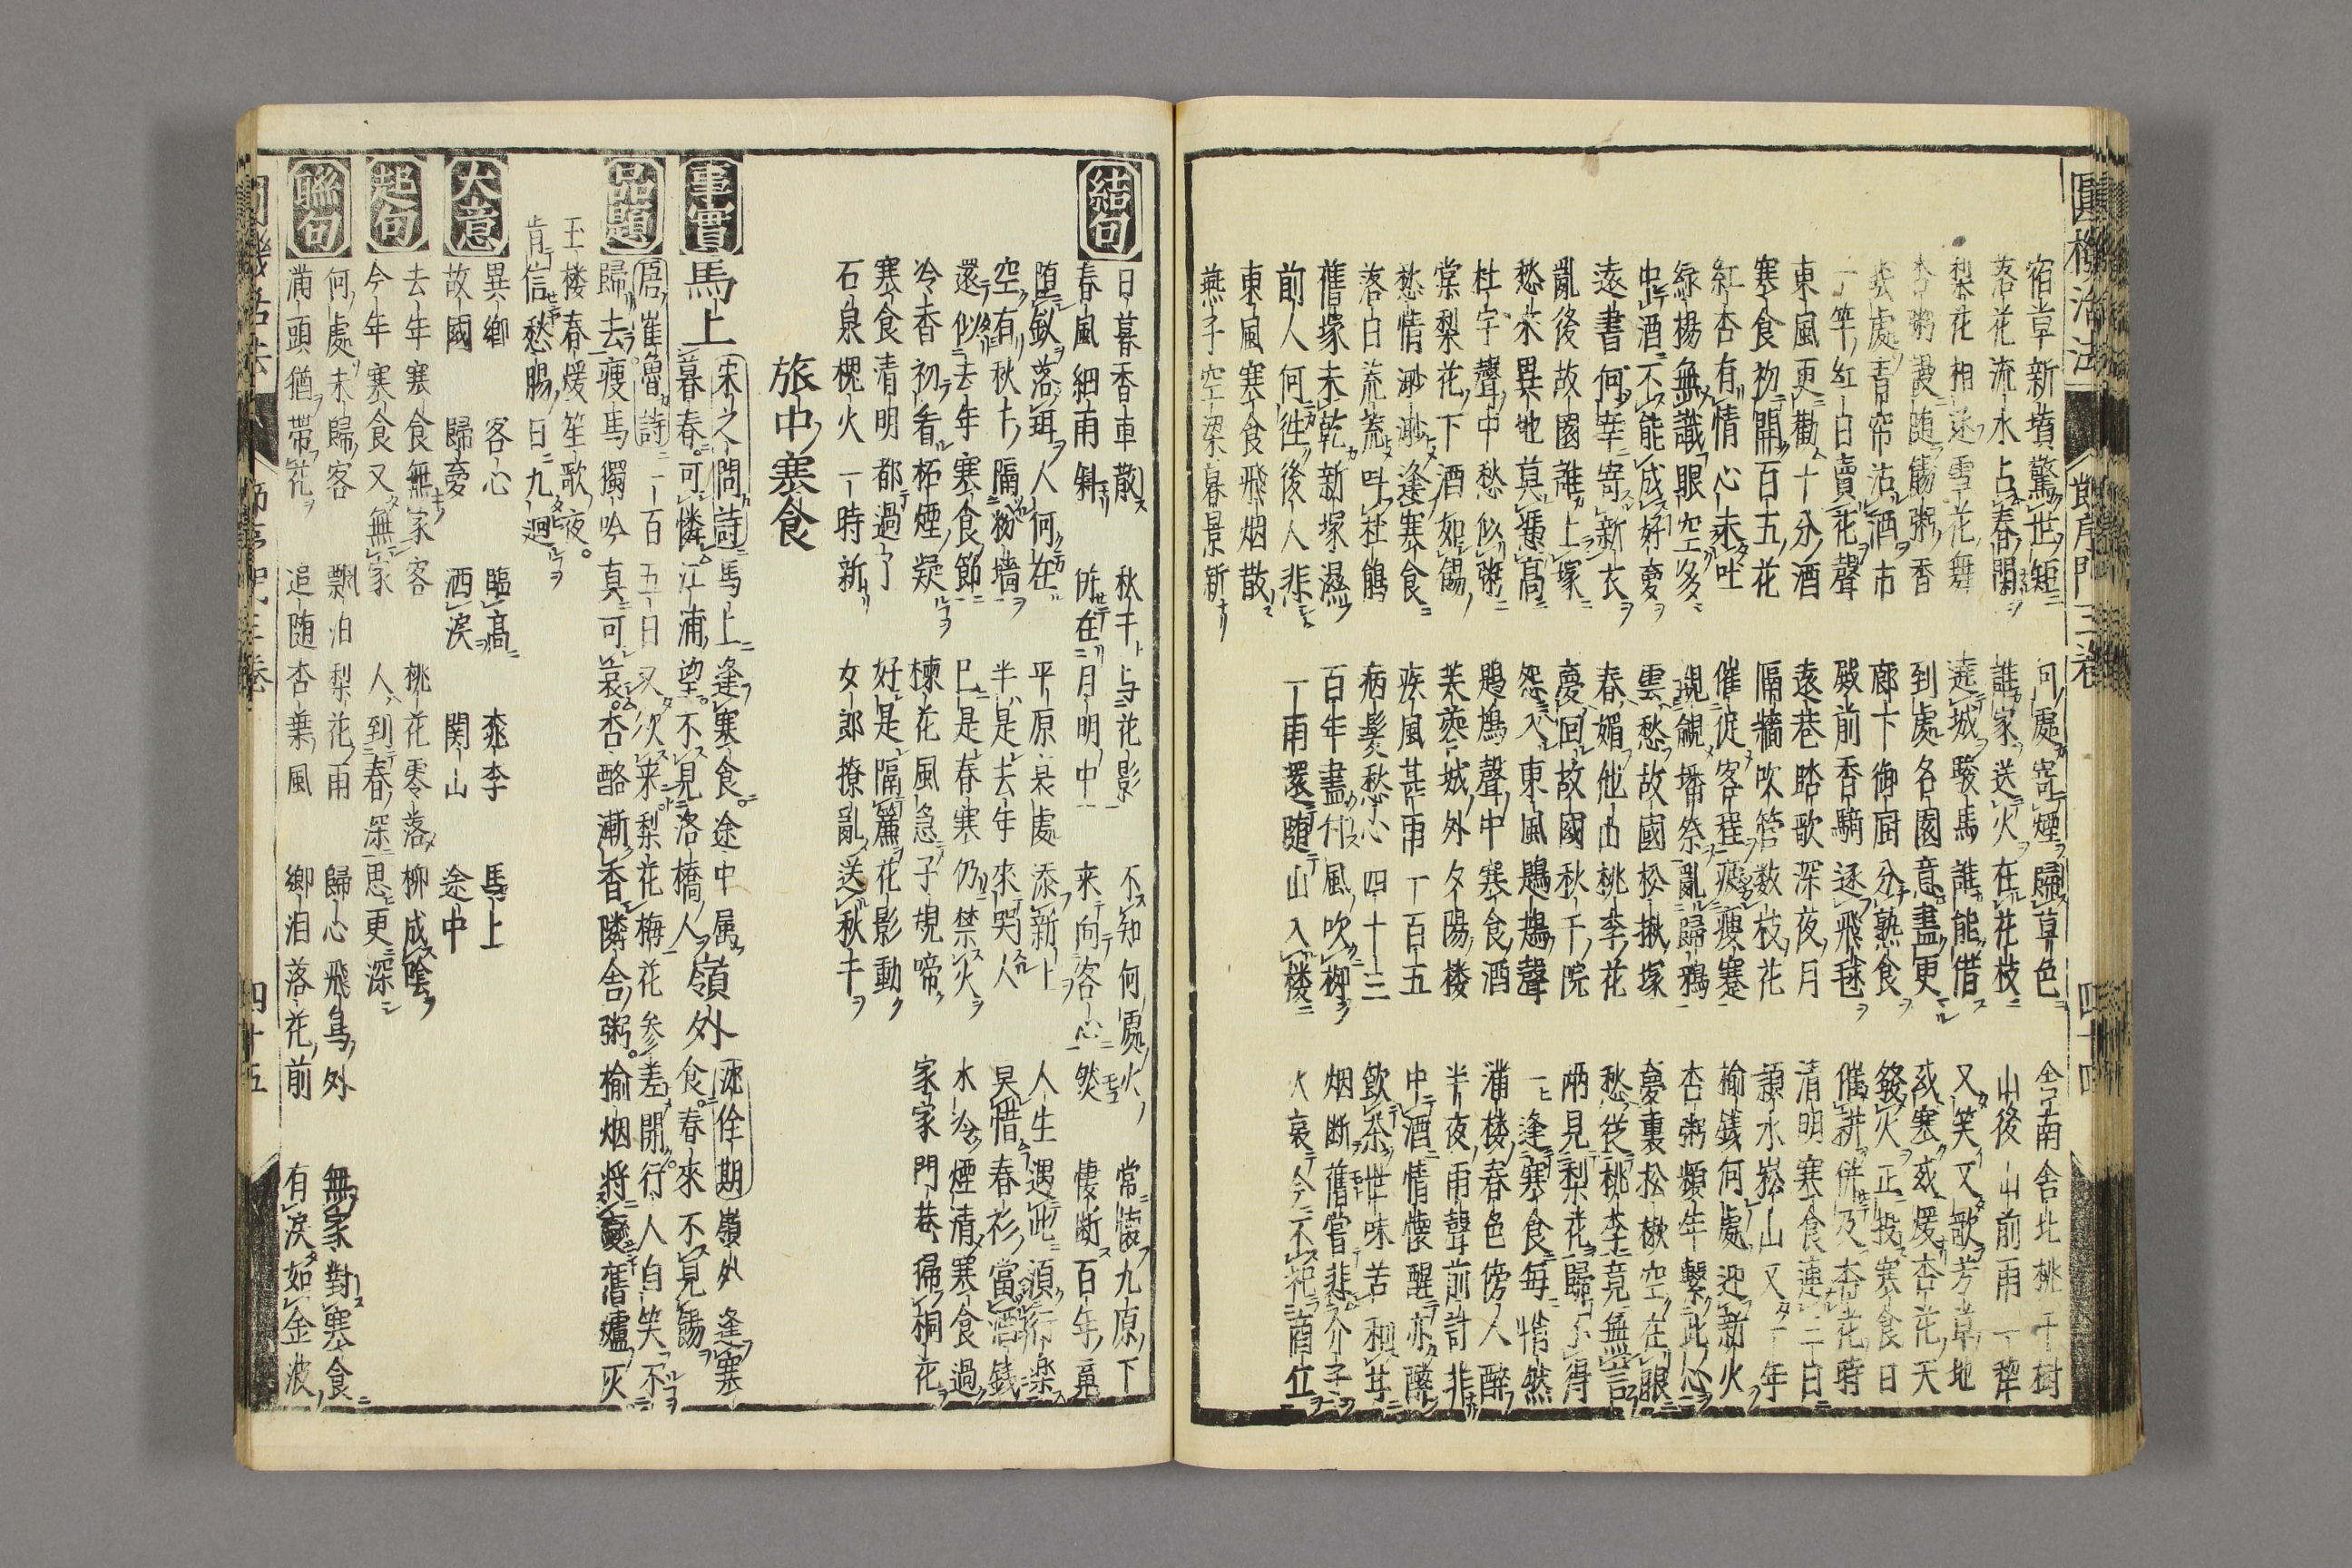 宿草新墳驚世短 何處寄煙歸草色 舍南舍北桃千樹
落花流水占春閑 誰家送火在花枝 山後山前雨一犂
梨花相逐雪花舞 遶城駿馬誰能借 又笑又歌芳草地
杏粥設隨餳粥香 到處名園意盡更 或寒或煖杏花天
幾處青帘沽酒市 廊下御厨分熟食 發火正投寒食日
一竿紅日賣花聲 殿前香騎逐飛毬 催耕併及杏花時
東風更勸十分酒 遠巷踏歌深夜月 清明寒食連三日
寒食初開百五花 隔牆吹管数枝花 潁水崧山又一年
紅杏有情心未吐 催促客程疲瘦蹇 榆錢何處迎新火
綠楊無識眼空多 覬覦墦祭亂歸鴉 杏粥頻年繫此心
中酒不能成好夢 雲愁故國松揪塚 夢裏松楸空在眼
遠書何幸寄新衣 春媚他山桃李花 愁從桃李竟無言
亂後故園誰上塚 夢回故國秋千院 兩見梨花歸不得
愁來異地莫憑高 怨入東風鶗鴂聲 一逢寒食每悄然
杜宇聲中愁似粥 鶗鴂聲中寒食酒 滿樓春色傍人醉
棠梨花下酒如餳 芙蓉城外夕陽楼 半夜雨聲前計非
愁情渺渺逢寒食 疾風甚雨一百五 中酒情懷醒亦醉
落日荒荒叫杜鵑 病髮愁心四十三 飲茶世味苦和甘
舊塚未乾新塚濕 百年盡付風吹柳 烟斷舊嘗悲介子
前人何徃後人悲 一雨還隨山入楼 火衰今不祀商丘
東風寒食飛烟散
燕子空梁暮景新
圓機活法 節序門三卷 四十四
結句 日暮香車散 秋千与花影 不知何處火 常懷九原下
春風細雨斜 所在月明中 来向客心然 悽斷百年事
墮釵落珥人何在 平原是處添新上 人生遇此須行楽
空有秋千隔粉墻 半是去年來哭人 莫惜春衫當酒錢
還似去年寒食節 巳是春寒仍禁火 水冷煙清寒食過
冷香初看柘煙凝 楝花風急子規啼 家家門巷掃桐花
寒食清明都過了 好是隔簾花影動
石泉槐火一時新 女郎撩亂送秋千
旅中寒食
事實 馬上 宋之問詩馬上逢寒食途中属
暮春可憐江浦望不見洛橋人 嶺外 沈佺期嶺外逢寒
食春來不見餳
品題 唐崔魯詩一百五日又欠来梨花梅花参差開行人自笑不
歸去瘦馬獨吟真可哀杏酪漸香隣舎粥榆烟将變舊爐灰
玉楼春煖笙歌夜
肯信愁腸日九迴
大意 異鄉 客心 臨高 桃李 馬上
故國 歸夢 洒淚 関山 途中
起句 去年寒食無家客 桃花零落柳成陰
今年寒食又無家 人到春深思更深
聯句 何處未歸客 飄泊梨花雨 歸心飛鳥外 無家對寒食
滿頭猶帶花 追随杏葉風 鄉泪落花前 有淚如金波
四十五